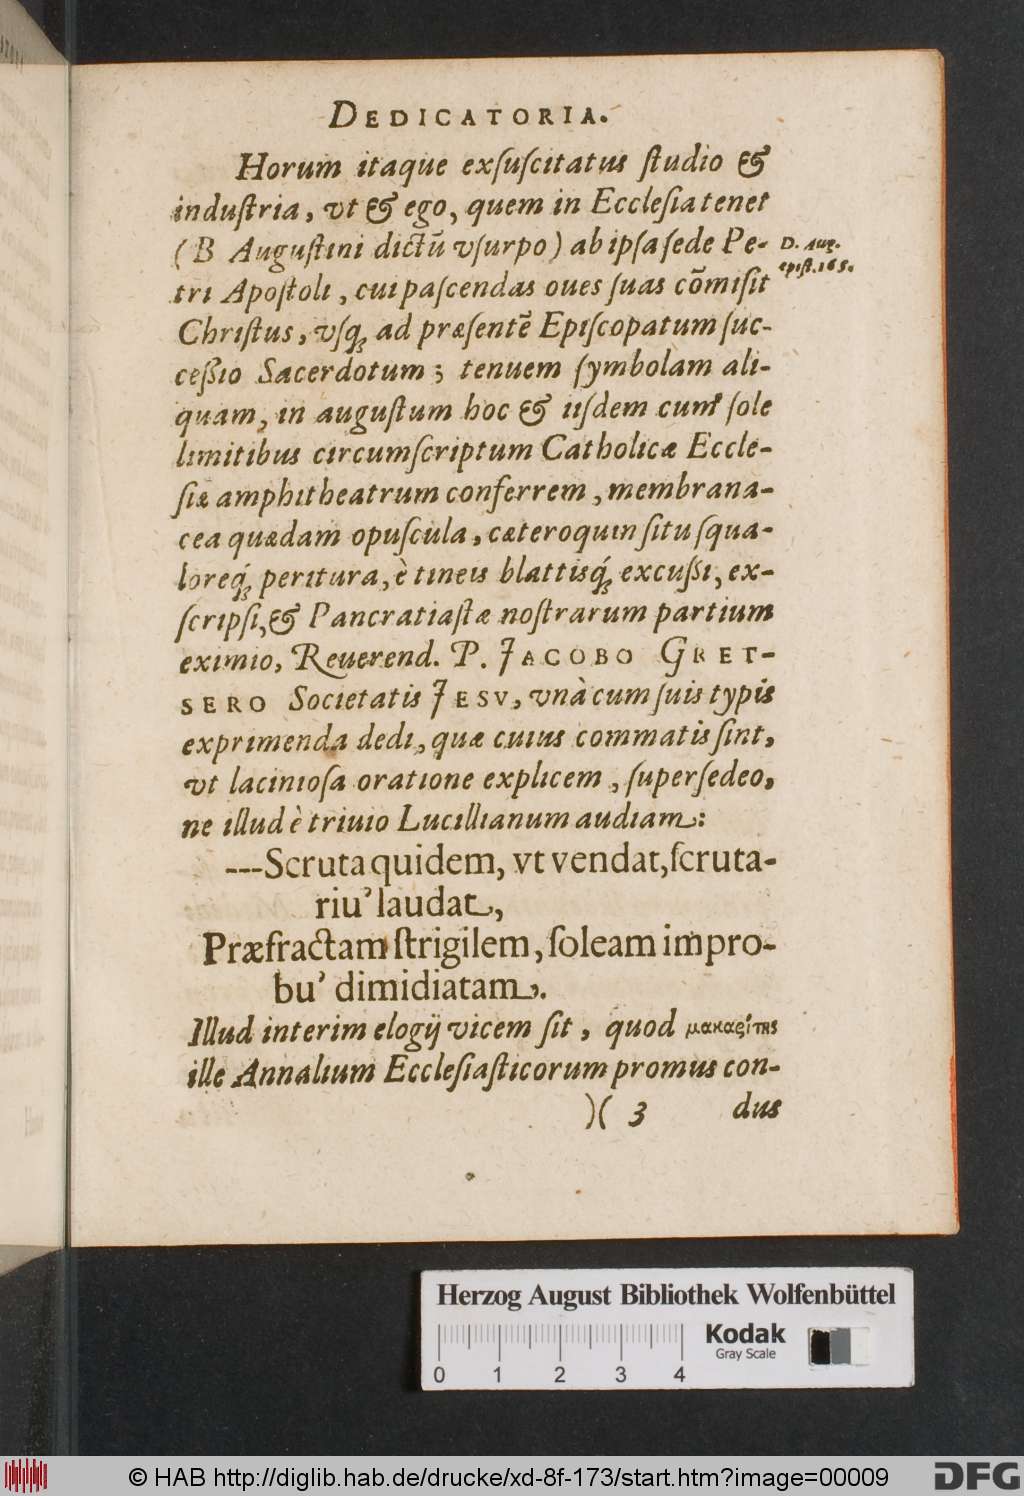 DEDICATORIA.
Horum itaque exſuſcitatus ſtudio &
induſtria, vt & ego, quem in Eccleſia tenet
(B Auguſtini dictū vſurpo) ab ipſa ſede Pe-
D. Aug.
epiſt. 165.
tri Apoſtoli, cui paſcendas oues ſuas cōmiſit
Chriſtus, vſq; ad præſentē Epiſcopatum ſuc-
ceßio Sacerdotum; tenuem ſymbolam ali-
quam, in auguſtum hoc & iiſdem cum ſole
limitibus circumſcriptum Catholicæ Eccle-
ſiæ amphitheatrum conferrem, membrana-
cea quædam opuſcula, cæteroquin ſitu ſqua-
loreq́; peritura, è tineis blattisq́; excußi, ex-
ſcripſi, & Pancratiaſtæ noſtrarum partium
eximio, Reuerend. P. JACOBO GRET-
SERO Societatis JESV, vnà cum ſuis typis
exprimenda dedi, quæ cuius commatis ſint,
vt lacinioſa oratione explicem, ſuperſedeo,
ne illud è triuio Lucillianum audiam:
---Scruta quidem, vt vendat, ſcruta-
riu’ laudat,
Præfractam ſtrigilem, ſoleam impro-
bu’ dimidiatam.
Illud interim elogij vicem ſit, quod μακαρίτης
ille Annalium Eccleſiaſticorum promus con-
)( 3 dus
Herzog August Bibliothek Wolfenbüttel
Kodak
Gray Scale
0 1 2 3 4
© HAB http://diglib.hab.de/drucke/xd-8f-173/start.htm?image=00009
DFG